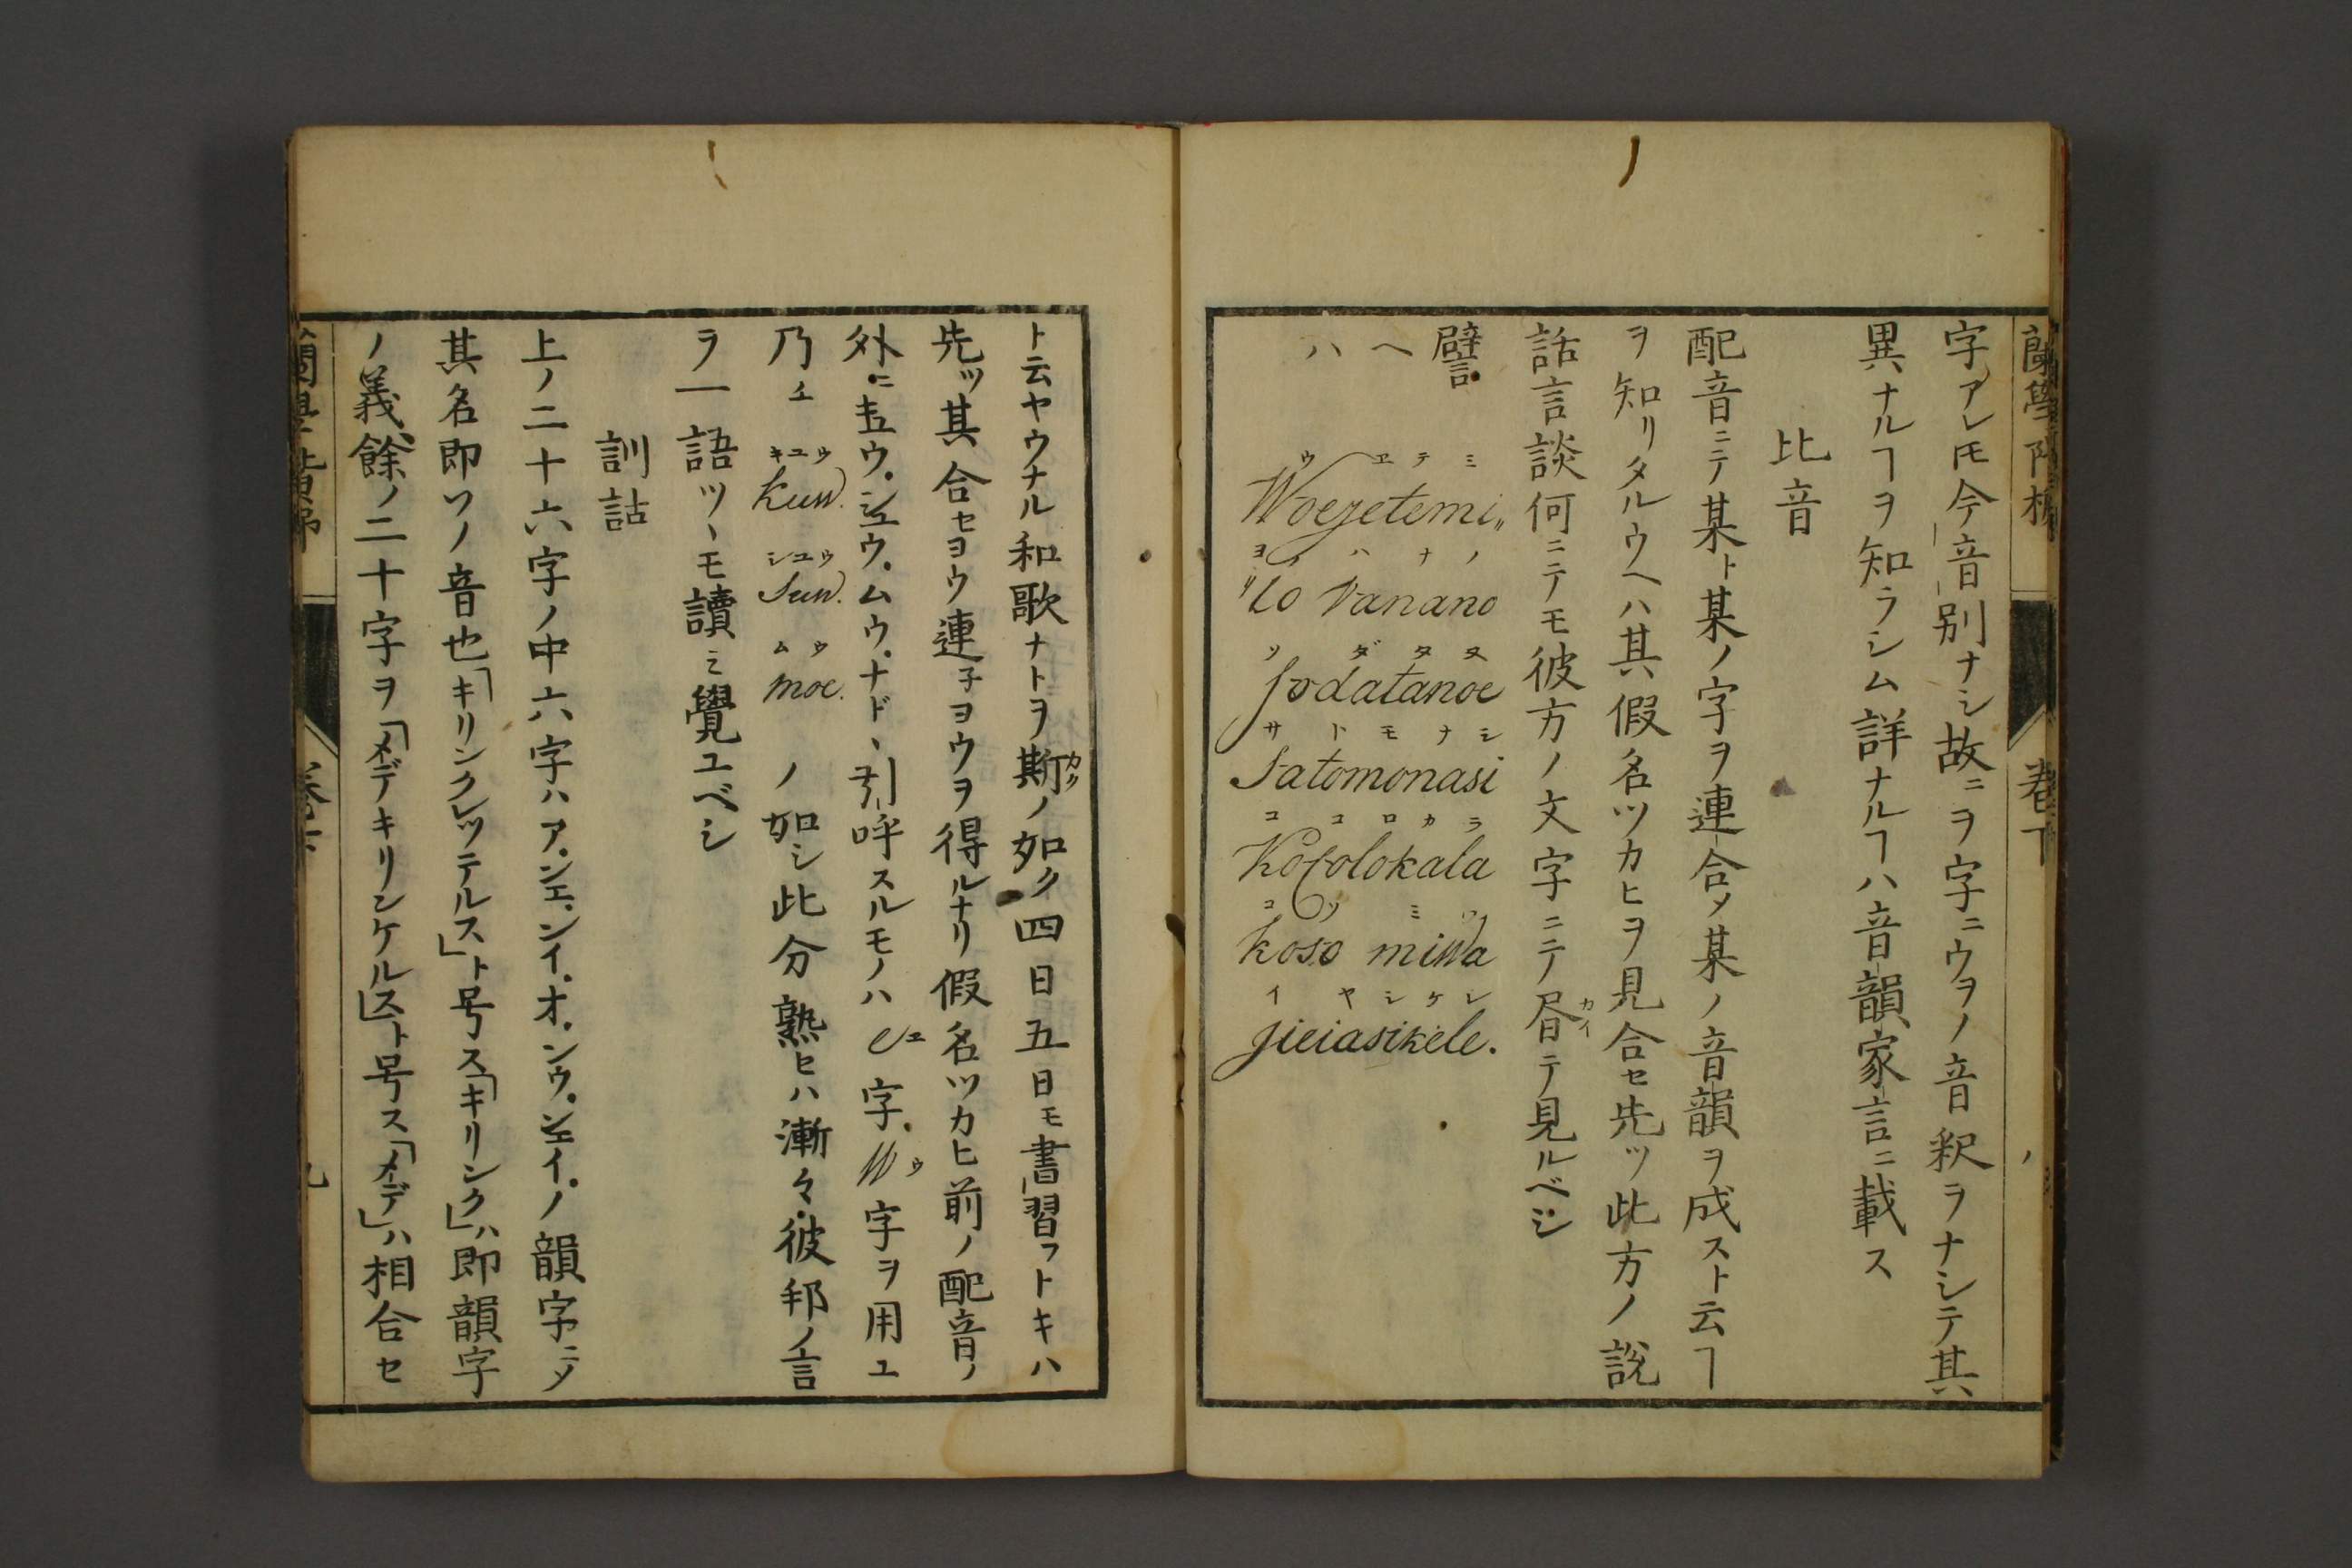 蘭學階梯 卷下
字アレ𪜈今音別ナシ故ニヲ字ニウヲノ音釈ヲナシテ其
異ナルヿヲ知ラシム詳ナルヿハ音韻家言ニ載ス
比音
配音ニテ某ト某ノ字ヲ連合〆某ノ音韻ヲ成スト云ヿ
ヲ知リタルウヘハ其假名ツカヒヲ見合セ先ツ此方ノ說
話言談何ニテモ彼方ノ文字ニテ㫺カイテ見ルベシ
譬ヘハ
ウヱテミ
Woejetemi,,
ヨノハナノ
"lo vanano
ソダタヌ
sodatanoe
サトモナシ
satomonasi
ココロカラ
Kocolokala
コソミハ
koso miwa
イヤシケレ
jieiasikele.
ト云ヤウナル和歌ナトヲ斯カクノ如ク四日五日モ書習フトキハ
先ツ其合セヨウ連子ヨウヲ得ルナリ假名ツカヒ前ノ配音ノ
外ニキユウ.シユウ.ムウ.ナド、引呼スルモノハ eエ字.Wウ字ヲ用ユ
乃チ キユウ kuw. シユウ suw. ムウ moe. ノ如シ此分熟セハ漸々彼邦ノ言
ヲ一語ツヽモ讀ミ覺ユベシ
訓詁
上ノ二十六字ノ中六字ハア.ンエ.ンイ.オ.ンウ.ンエイ.ノ韻字ニ〆
其名即ツノ音也「キリンクレッテルス」ト号ス「キリンク」ハ即韻字
ノ義餘ノ二十字ヲ「メデキリンケルス」ト号ス「メデ」ハ相合セ